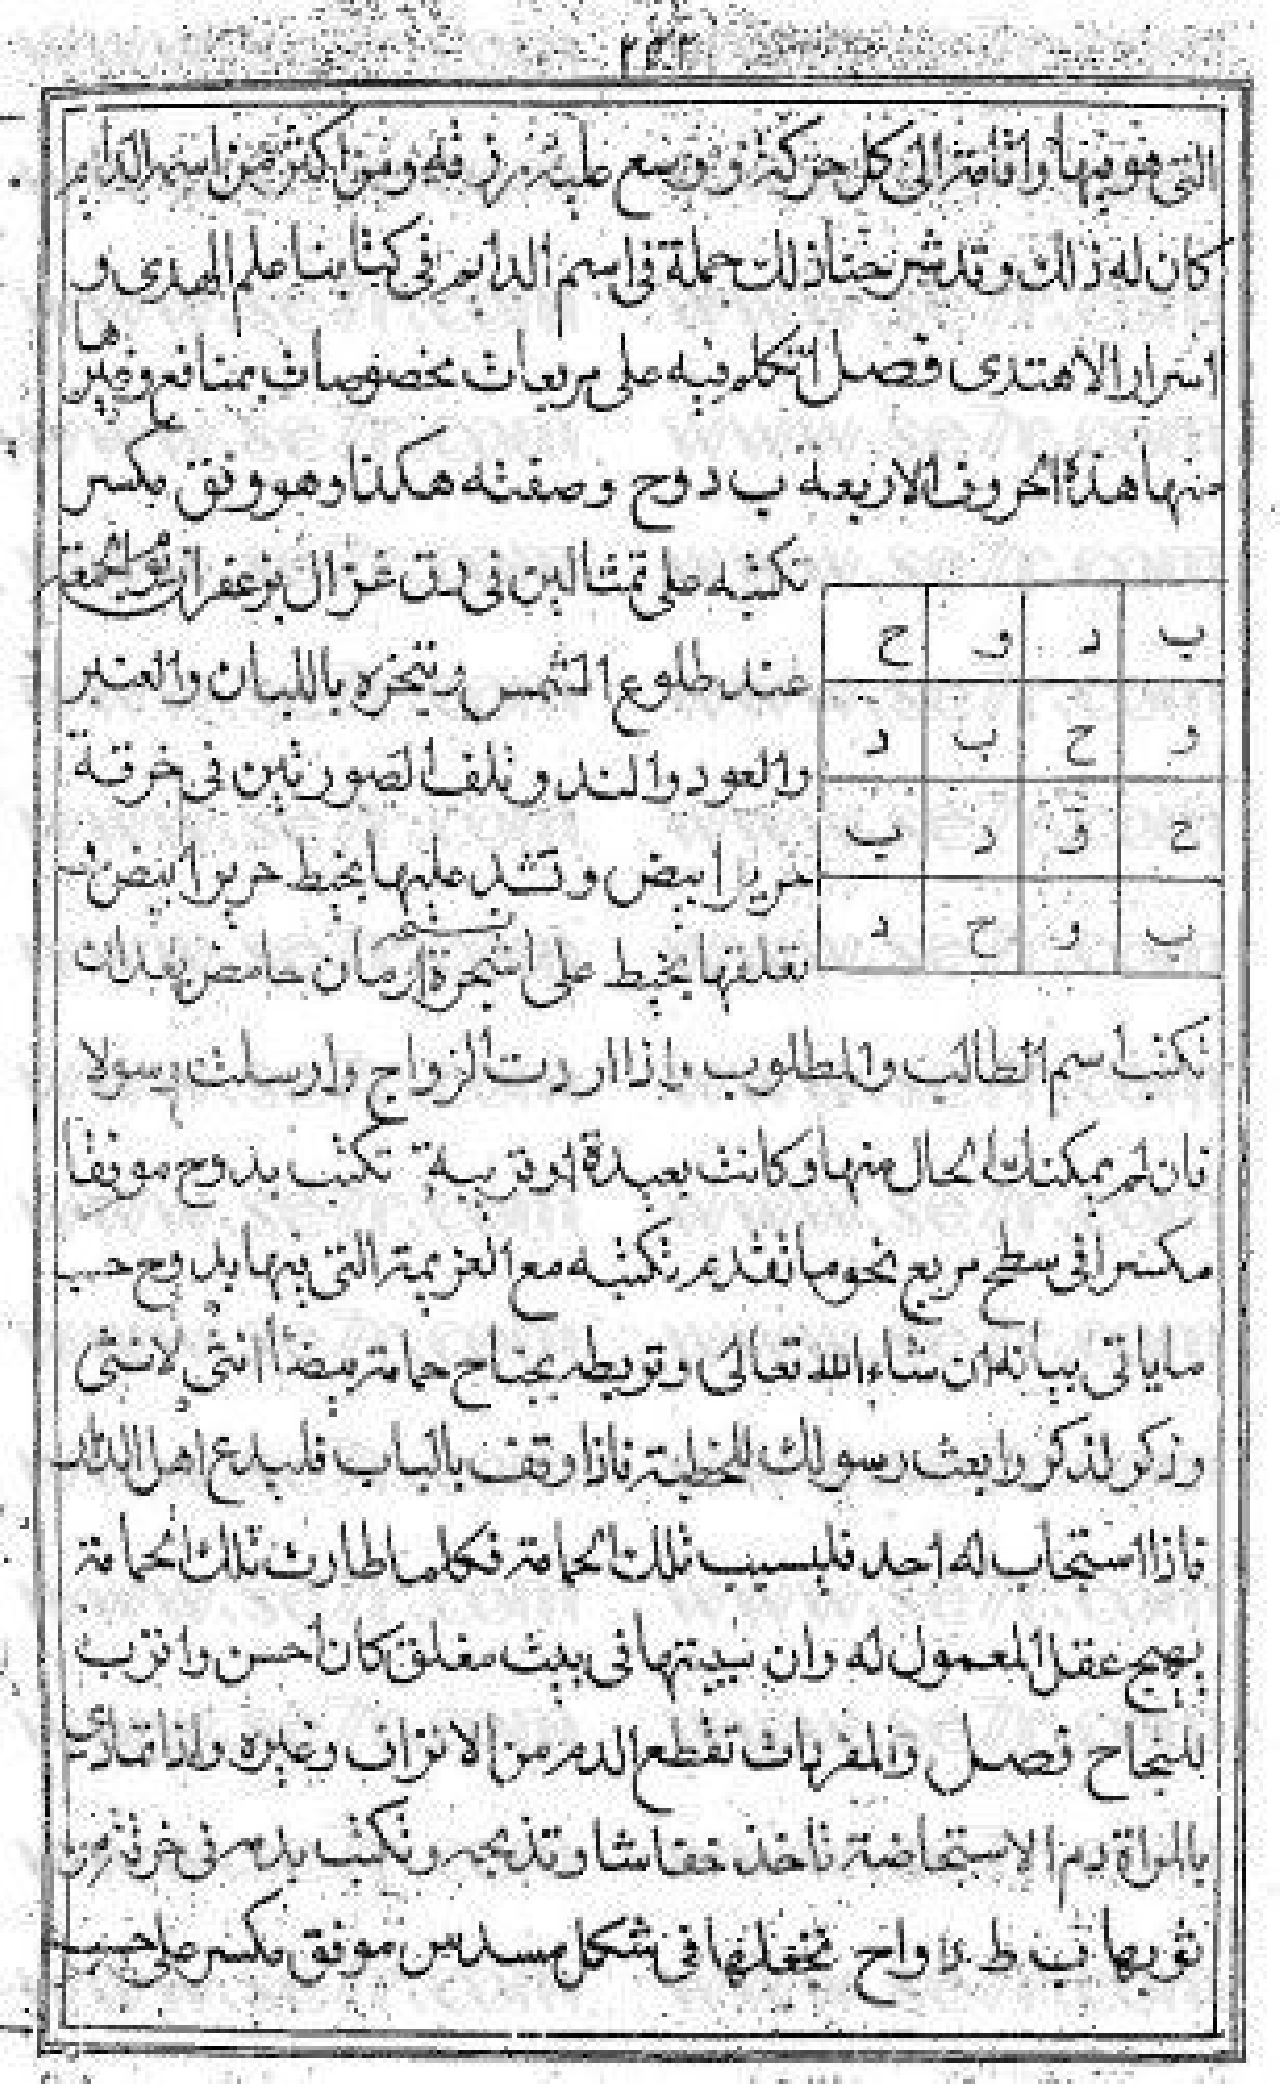 التى هو فيها واقامة الى كل حركة و وسع عليه رزقه ومن اكثر من اسمه الدايم
كان له ذالك وقد شرحنا ذلك جملة فى اسم الدايم فى كتابنا علم الهدى و
اسرار الاهتدى فصل اتكلم فيه على مربعات مخصوصات بمنافع وغيرها
منها هذه الحروف الاربعة ب د و ح وصفته هكذا وهو وفق مكسر
تكتبه على تمثالين فى رق غزال بزعفران يوم الجمعة
عند طلوع الشمس وتبخره باللبان والعنبر
والعود والند وتلف الصورتين فى خرقة
حرير ابيض وتشد عليها بخيط حرير ابيض و
تعلقها بخيط على شجرة رمان حامض بعد ان
ب د و ح
و ح ب د
ح و د ب
ب و ح د
تكتب اسم الطالب والمطلوب واذا اردت الزواج وارسلت رسولا
فان لم يمكنك الحال منها وكانت بعيدة او قريبة تكتب بدوح موفقا
مكسرا فى سطح مربع نحو ما تقدم تكتبه مع العزيمة التى فيها بدوح حسب
ما ياتى بيانه ان شاء الله تعالى وتربطه بجناح حمامة بيضا انثى لانثى
وذكر لذكر وابعث رسولك للخطبة فاذا وقف بالباب فليدع اهل الدار
فاذا استجاب له احد فليسيب تلك الحمامة فكلما طارت تلك الحمامة
يهيج عقل المعمول له وان سيبتها فى بيت مغلق كان احسن واقرب
للنجاح فصل والمفردات تقطع الدم من الانزاف وغيره واذا تمادى
بالمراة دم الاستحاضة تاخذ خفاشا وتذبحه وتكتب بدمه فى خرقة من
ثوبها ب ط د و ا ح تجعلها فى شكل مسدس موفق مكسر على حسب